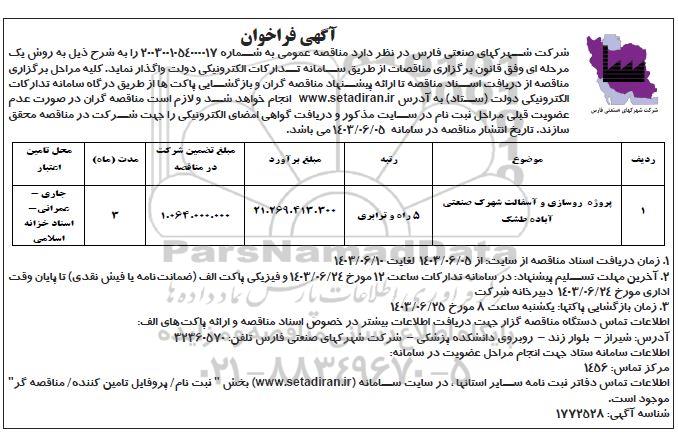 آگهی فراخوان
شرکت شهرکهای صنعتی فارس در نظر دارد مناقصه عمومی به شماره ۲۰۰۳۰۰۱۰۵۴۰۰۰۰۱۷ را به شرح ذیل به روش یک
مرحله ای وفق قانون برگزاری مناقصات از طریق سامانه تدارکات الکترونیکی دولت واگذار نماید. کلیه مراحل برگزاری
مناقصه از دریافت اسناد مناقصه تا ارائه پیشنهاد مناقصه گران و بازگشایی پاکت ها از طریق درگاه سامانه تدارکات
الکترونیکی دولت (ستاد) به آدرس www.setadiran.ir انجام خواهد شد و لازم است مناقصه گران در صورت عدم
عضویت قبلی مراحل ثبت نام در سایت مذکور و دریافت گواهی امضای الکترونیکی را جهت شرکت در مناقصه محقق
سازند. تاریخ انتشار مناقصه در سامانه ۱۴۰۳/۰۶/۰۵ می باشد.
شرکت شهرکهای صنعتی فارس
ردیف موضوع رتبه مبلغ برآورد مبلغ تضمین شرکت در مناقصه مدت (ماه) محل تامین اعتبار
۱ پروژه روسازی و آسفالت شهرک صنعتی آباده طشک ۵ راه و ترابری ۲۱.۲۶۹.۴۱۳.۳۰۰ ۱.۰۶۴.۰۰۰.۰۰۰ ۳ جاری – عمرانی– اسناد خزانه اسلامی
۱. زمان دریافت اسناد مناقصه از سایت: از ۱۴۰۳/۰۶/۰۵ لغایت ۱۴۰۳/۰۶/۱۰
۲. آخرین مهلت تسلیم پیشنهاد: در سامانه تدارکات ساعت ۱۲ مورخ ۱۴۰۳/۰۶/۲۴ و فیزیکی پاکت الف (ضمانت نامه یا فیش نقدی) تا پایان وقت
اداری مورخ ۱۴۰۳/۰۶/۲۴ دبیرخانه شرکت
۳. زمان بازگشایی پاکتها: یکشنبه ساعت ۸ مورخ ۱۴۰۳/۰۶/۲۵
اطلاعات تماس دستگاه مناقصه گزار جهت دریافت اطلاعات بیشتر در خصوص اسناد مناقصه و ارائه پاکت های الف:
آدرس: شیراز – بلوار زند – روبروی دانشکده پزشکی – شرکت شهرکهای صنعتی فارس تلفن: ۳۲۳۶۰۵۷۰
اطلاعات سامانه ستاد جهت انجام مراحل عضویت در سامانه:
مرکز تماس: ۱۴۵۶
اطلاعات تماس دفاتر ثبت نامه سایر استانها ، در سایت سامانه (www.setadiran.ir) بخش " ثبت نام/ پروفایل تامین کننده/ مناقصه گر"
موجود است.
شناسه آگهی: ۱۷۷۲۵۲۸
ParsNamadData
۰۲۱-۸۸۳۴۹۶۷۰-۵